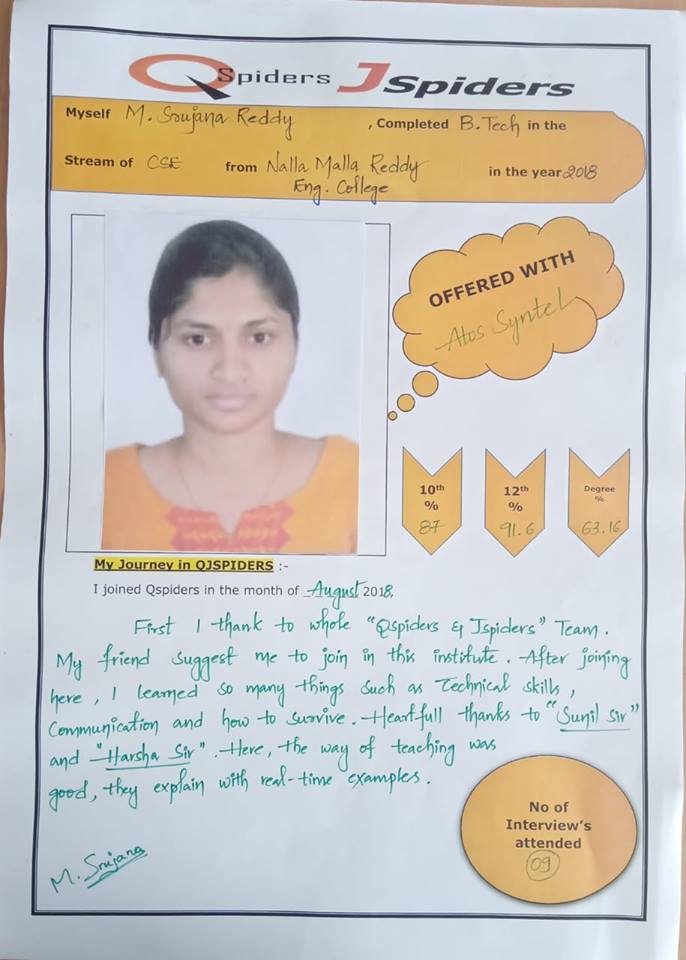 QSpiders JSpiders
Myself M. Srujana Reddy , Completed B.Tech in the
Stream of CSE from Nalla Malla Reddy Eng. College in the year 2018
OFFERED WITH
Atos Syntel
10th % 87
12th % 91.6
Degree % 63.16
My Journey in QJSPIDERS :-
I joined Qspiders in the month of August 2018,
First I thank to whole "Qspiders & Jspiders" Team.
My friend suggest me to join in this institute. After joining
here, I learned so many things such as Technical skills,
Communication and how to survive. Heartfull thanks to "Sunil Sir"
and "Harsha Sir". Here, the way of teaching was
good, they explain with real-time examples.
No of
Interview's
attended
09
M. Srujana